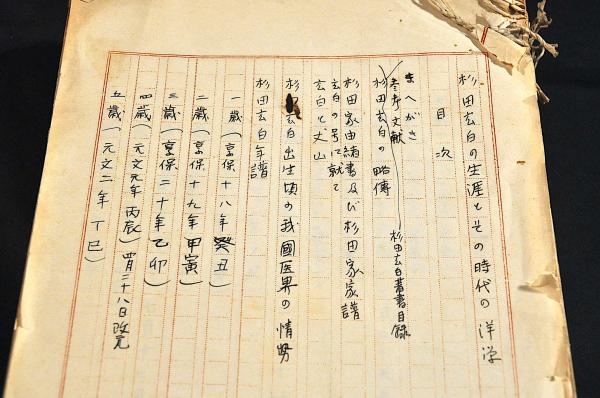 杉田玄白の生涯とその時代の洋学
目次
まへがき
参考文献 杉田玄白著書目録
杉田玄白の略傳
杉田家由緒書及び杉田家家譜
玄白の号に就て
玄白と丈山
杉田玄白出生頃の我國医界の情勢
杉田玄白年譜
一歳(享保十八年癸丑)
二歳(享保十九年甲寅)
三歳(享保二十年乙卯)
四歳(元文元年丙辰)四月二十八日改元
五歳(元文二年丁巳)